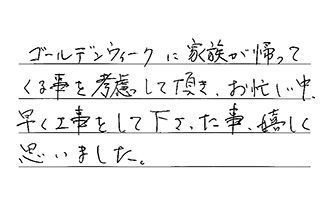 ゴールデンウィークに家族が帰って
くる事を考慮して頂き、お忙い中、
早く工事をして下さった事、嬉しく
思いました。